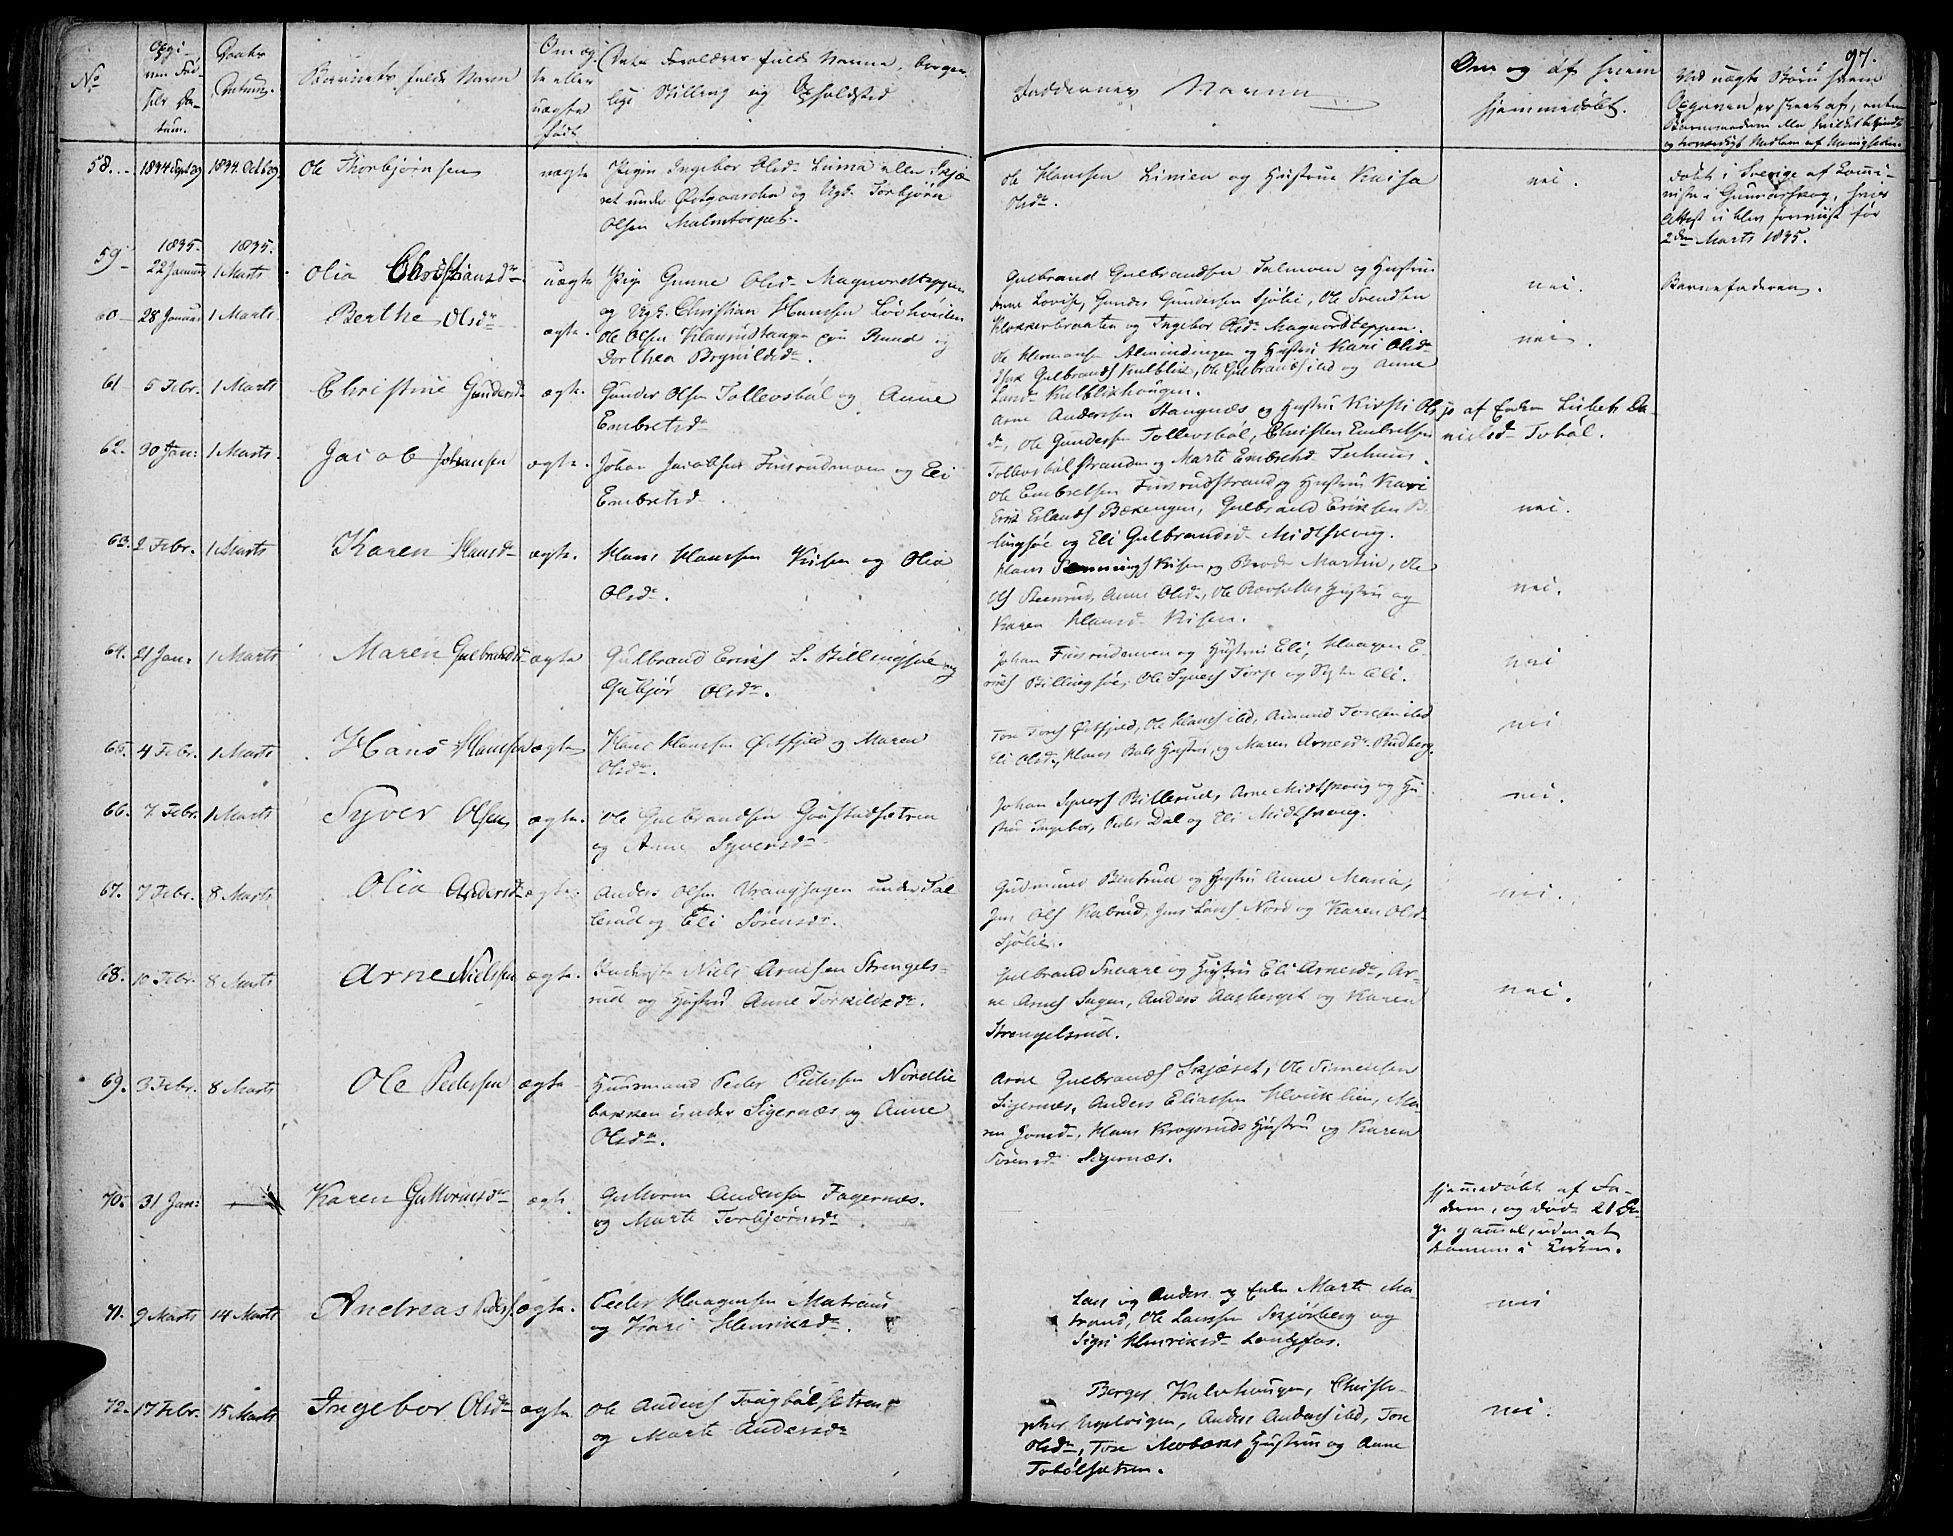 97.
No
Opgi-
ven Fød-
sels Da-
tum.
Daabs
Datum.
Barnets fulde Navn
Om æg-
te eller
uægte
født
Dets Forældres fulde Navne, borger-
lige Stilling og Opholdsted
Faddernes Navne
Om og af hvem
hjemmedøbt.
Ved uægte Børn hvem
Opgaven er skeet af, enten
58. 1834 Sept 29 1834. Oct 29 Ole Thorbjørnsen uægte Pigen Ingebor Olsd. Lima eller Skjæ-
ret under Østgaarden og Ugk. Torbjørn
Olsen Malmtorpet.
Ole Hansen Linien og Hustrue Kaisa
Olsdr.
nei.
døbt i Sverige af Comi-
nister i Gunnarskog, hvis
Attest ei blev foreviist før
2den Marts 1835.
59 1835. 22 Januar 1835. 1 Marts Olia Christiansdr uægte Pige Gunne Olsd. Magnordteppen
og Ugk. Christian Hansen Løvhøiden
Gulbrand Gulbrandsen Talmoen og Hustru
Anne Lovise, Gunder Gundersen Sjølie, Ole Svendsen
Klokkerbraaten og Ingebor Olsd. Magnordteppen.
nei.
Barnefaderen.
60 28 Januar 1 Marts Berthe Olsdr ægte. Ole Olsen Haurudstangen paa Grund og
Dorthea Brynildsdr.
Ole Hermansen Almindingen og Hustru Kari Olsdr
Gulbrands Kulblik, Ole Gulbrands ibd og Anne
Larsd. Kulblikhaugen.
nei.
61 5 Febr. 1 Marts Christine Gundersd ægte. Gunder Olsen Tollevsbøl og Anne
Embretsd.
Arne Andersen Stangnæs og Hustru Kirsti Ols-
d., Ole Gundersen Tollevsbøl, Christen Embretsen
Tollevsbøl Stranden og Marte Embretsd.
ja af Enken Lisbet Da-
nielsd. Tobøl.
62. 30 Jan: 1 Marts. Jacob Johansen ægte. Johan Jacobsen Finsrudmoen og Eli
Embretsd.
Ole Embretsen Finsrudstrand og Hustru Kari
Erik Erlands Bækengen, Gulbrand Eriksen B-
lingsøe og Eli Gulbrandsd. Midtskoug.
nei.
63. 2 Febr. 1 Marts Karen Hansdr ægte. Hans Hansen Kisen og Olia
Olsdr.
Hans Kisen og Broder Martin, Ole
Anne Olsd., Ole Hustru og
Karen Hansd. Kisen.
nei.
64. 21 Jan. 1 Marts Maren Gulbrandsd ægte Gulbrand Eriks. L. Billingsøe og
Gubjør Olsdr.
Johan Finsrudmoen og Hustru Eli, Haagen E-
riks Billingsøe, Ole Syvers Torp og Pige Eli.
nei
65. 4 Febr. 1 Marts Hans Hansen ægte Hans Hansen Østfjeld og Maren
Olsdr.
Tore Tores Østfjeld, Ole Hans ibd, Amund Toresen ibd
Eli Olsdr, Hans Bals Hustru, og Maren Arnesdr. Rudberg.
nei
66. 7 Febr. 1 Marts Syver Olsen ægte. Ole Gulbrandsen Goustadsætren
og Anne Syversdr
Johan Syvers Billerud, Arne Midtskoug og Hu-
stru Ingebor, Peder Dal og Eli Midtskoug.
nei.
67. 7 Febr. 8 Marts Olia Andersd ægte. Anders Olsen Vranghagen under Sal-
lerud og Eli Sørensdr.
Gudmund Bentrud og Hustru Anne Maria,
Jens Ols. Kabrud, Jens Lars Nord og Karen Olsd
Sjølie.
nei.
68. 10 Febr. 8 Marts Arne Nielsen ægte. Inderste Niels Arnesen Strengels-
rud og Hustru Anne Torkildsdr.
Gulbrand Snaare og Hustru Eli Arnesdr, Ar-
ne Arnes Sagen, Anders Aasberget og Karen
Strengelsrud.
nei.
69. 3 Febr. 8 Marts Ole Pedersen ægte Huusmand Peder Pedersen Nordlie
bakken under Sigernæs og Anne
Olsdr.
Arne Gulbrands Skjæret, Ole Simensen
Sigernæs, Anders Eliassen Hviklien, Ma-
ren Jonsd., Hans Krogsruds Hustru og Karen
Sørensd. Sigernæs.
70. 31 Jan: Karen Guttormsdr ægte. Guttorm Andersen Fagernæs.
og Marte Torbjørnsdr
hjemmedøbt af Fa-
deren, og døde 21 Da-
ge gammel, uden at
komme i Kirken.
71. 9 Marts 14 Marts Andreas Peders. ægte. Peder Haagensen Matrand
og Kari Henriksdr.
Lars og Anders og Enken Marte Ma-
trand, Ole Larssen Skjørberg og
Sigri Henriksd. Lontfos.
nei
72. 17 Febr. 15 Marts Ingebor Olsdr ægte Ole Anders Tougbølsætren
og Marte Andersdr
Berger Kulvhaugen, Christo-
pher, Anders Anders ibd, Tore
Olsdr, Tore Mobæks Hustru og Anne
Tobølsætren.
nei.